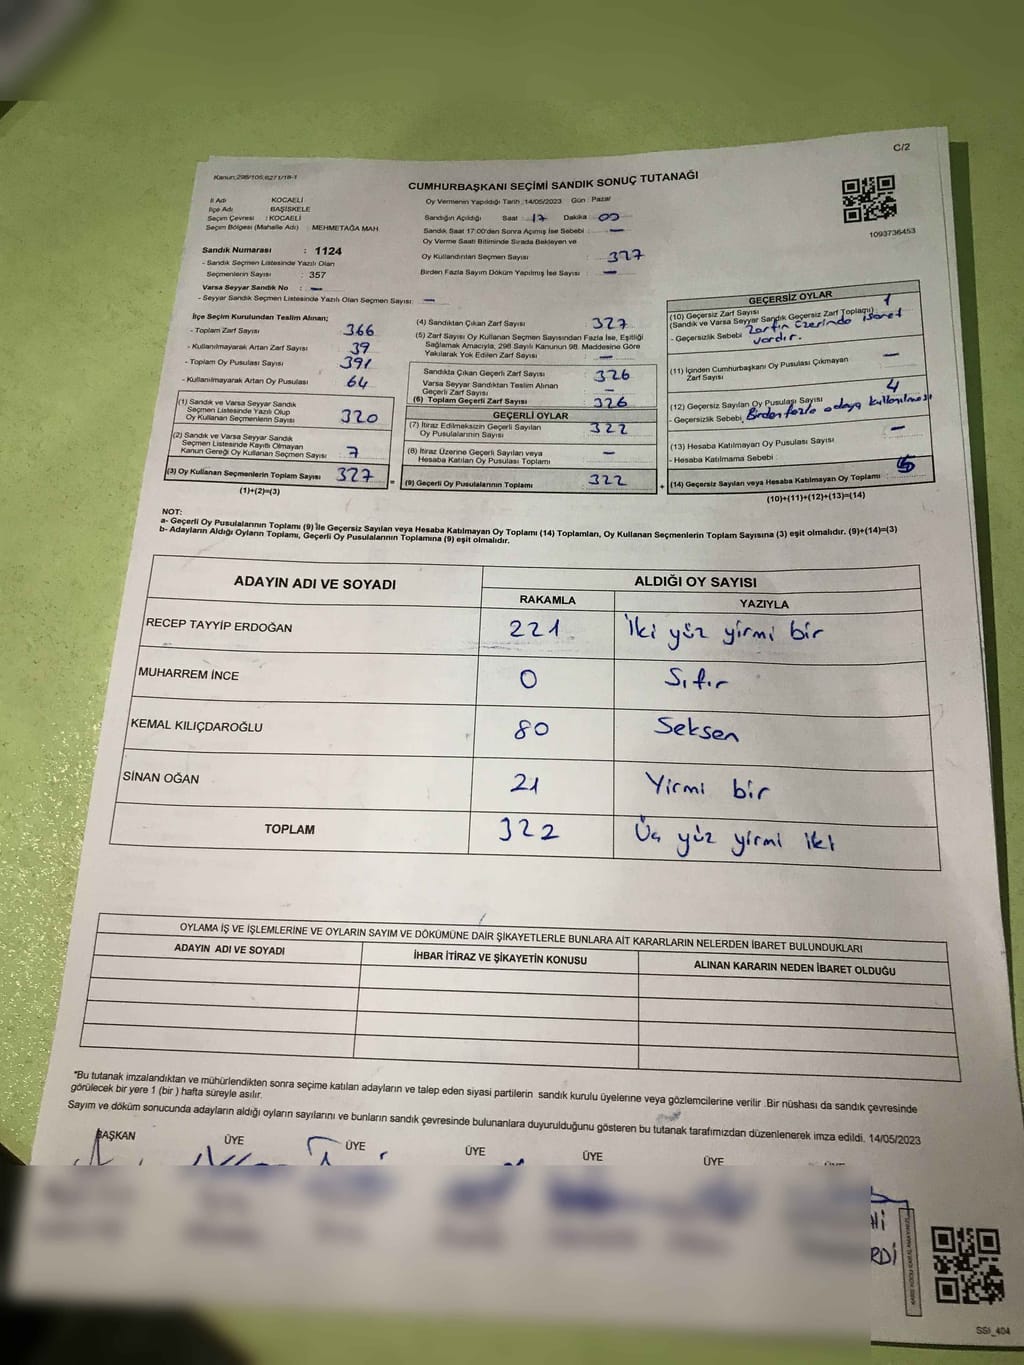 C/2
Kanun:298/105;6271/18-1
CUMHURBAŞKANI SEÇİMİ SANDIK SONUÇ TUTANAĞI
1093736453
İl Adı KOCAELİ
İlçe Adı BAŞİSKELE
Seçim Çevresi : KOCAELİ
Seçim Bölgesi (Mahalle Adı) : MEHMETAĞA MAH.
Sandık Numarası : 1124
- Sandık Seçmen Listesinde Yazılı Olan
Seçmenlerin Sayısı : 357
Varsa Seyyar Sandık No : —
- Seyyar Sandık Seçmen Listesinde Yazılı Olan Seçmen Sayısı: —
Oy Vermenin Yapıldığı Tarih :14/05/2023 Gün : Pazar
Sandığın Açıldığı Saat : 17 Dakika : 00
Sandık Saat 17:00'den Sonra Açımış İse Sebebi : —
Oy Verme Saati Bitiminde Sırada Bekleyen ve
Oy Kullandırılan Seçmen Sayısı : 327
Birden Fazla Sayım Döküm Yapılmış İse Sayısı : —
İlçe Seçim Kurulundan Teslim Alınan;
- Toplam Zarf Sayısı : 366
- Kullanılmayarak Artan Zarf Sayısı : 39
- Toplam Oy Pusulası Sayısı : 391
- Kullanılmayarak Artan Oy Pusulası : 64
(1) Sandık ve Varsa Seyyar Sandık
Seçmen Listesinde Yazılı Olup
Oy Kullanan Seçmenlerin Sayısı : 320
(2) Sandık ve Varsa Seyyar Sandık
Seçmen Listesinde Kayıtlı Olmayan
Kanun Gereği Oy Kullanan Seçmen Sayısı : 7
(3) Oy Kullanan Seçmenlerin Toplam Sayısı : 327
(1)+(2)=(3)
=
(4) Sandıktan Çıkan Zarf Sayısı : 327
(5) Zarf Sayısı Oy Kullanan Seçmen Sayısından Fazla İse, Eşitliği
Sağlamak Amacıyla, 298 Sayılı Kanunun 98. Maddesine Göre
Yakılarak Yok Edilen Zarf Sayısı : —
Sandıkta Çıkan Geçerli Zarf Sayısı : 326
Varsa Seyyar Sandıktan Teslim Alınan
Geçerli Zarf Sayısı : —
(6) Toplam Geçerli Zarf Sayısı : 326
GEÇERLİ OYLAR
(7) İtiraz Edilmeksizin Geçerli Sayılan
Oy Pusulalarının Sayısı : 322
(8) İtiraz Üzerine Geçerli Sayılan veya
Hesaba Katılan Oy Pusulası Toplamı : —
(9) Geçerli Oy Pusulalarının Toplamı : 322
+
GEÇERSİZ OYLAR
(10) Geçersiz Zarf Sayısı 1
(Sandık ve Varsa Seyyar Sandık Geçersiz Zarf Toplamı)
- Geçersizlik Sebebi : Zarfın üzerinde işaret
vardır.
(11) İçinden Cumhurbaşkanı Oy Pusulası Çıkmayan
Zarf Sayısı —
(12) Geçersiz Sayılan Oy Pusulası Sayısı 4
- Geçersizlik Sebebi : Birden fazla adaya kullanılması
(13) Hesaba Katılmayan Oy Pusulası Sayısı —
- Hesaba Katılmama Sebebi :
(14) Geçersiz Sayılan veya Hesaba Katılmayan Oy Toplamı : 5
(10)+(11)+(12)+(13)=(14)
NOT:
a- Geçerli Oy Pusulalarının Toplamı (9) İle Geçersiz Sayılan veya Hesaba Katılmayan Oy Toplamı (14) Toplamları, Oy Kullanan Seçmenlerin Toplam Sayısına (3) eşit olmalıdır. (9)+(14)=(3)
b- Adayların Aldığı Oyların Toplamı, Geçerli Oy Pusulalarının Toplamına (9) eşit olmalıdır.
ADAYIN ADI VE SOYADI ALDIĞI OY SAYISI
RAKAMLA YAZIYLA
RECEP TAYYİP ERDOĞAN 221 İki yüz yirmi bir
MUHARREM İNCE 0 Sıfır
KEMAL KILIÇDAROĞLU 80 Seksen
SİNAN OĞAN 21 Yirmi bir
TOPLAM 322 Üç yüz yirmi iki
OYLAMA İŞ VE İŞLEMLERİNE VE OYLARIN SAYIM VE DÖKÜMÜNE DAİR ŞİKAYETLERLE BUNLARA AİT KARARLARIN NELERDEN İBARET BULUNDUKLARI
ADAYIN ADI VE SOYADI İHBAR İTİRAZ VE ŞİKAYETİN KONUSU ALINAN KARARIN NEDEN İBARET OLDUĞU
*Bu tutanak imzalandıktan ve mühürlendikten sonra seçime katılan adayların ve talep eden siyasi partilerin sandık kurulu üyelerine veya gözlemcilerine verilir .Bir nüshası da sandık çevresinde
görülecek bir yere 1 (bir ) hafta süreyle asılır.
Sayım ve döküm sonucunda adayların aldığı oyların sayılarını ve bunların sandık çevresinde bulunanlara duyurulduğunu gösteren bu tutanak tarafımızdan düzenlenerek imza edildi. 14/05/2023
BAŞKAN ÜYE ÜYE ÜYE ÜYE ÜYE
SSI_404